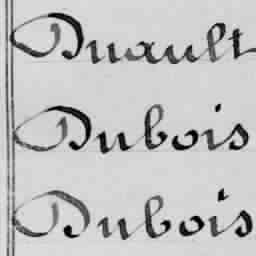 Duault
Dubois
Dubois